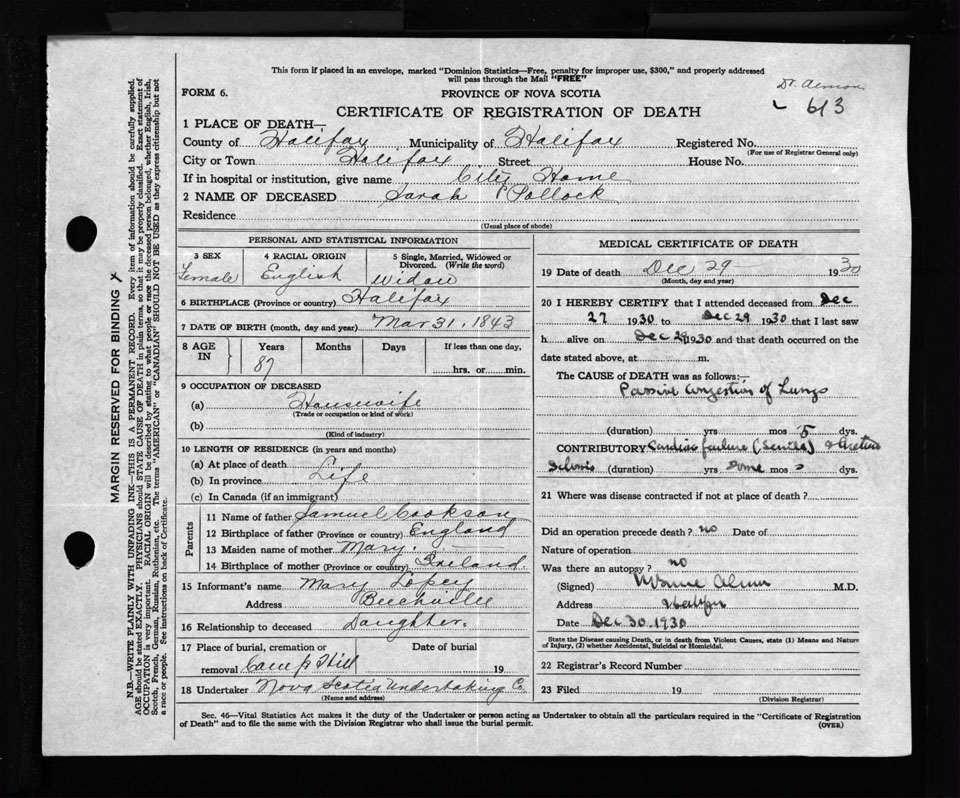 This form if placed in an envelope, marked "Dominion Statistics—Free, penalty for improper use, $300," and properly addressed
will pass through the Mail "FREE"
Dr. Almon
613
FORM 6.
PROVINCE OF NOVA SCOTIA
CERTIFICATE OF REGISTRATION OF DEATH
1 PLACE OF DEATH—
County of Halifax Municipality of Halifax Registered No.
(For use of Registrar General only)
City or Town Halifax Street House No.
If in hospital or institution, give name City Home
2 NAME OF DECEASED Sarah Pollock
Residence
(Usual place of abode)
PERSONAL AND STATISTICAL INFORMATION
3 SEX 4 RACIAL ORIGIN 5 Single, Married, Widowed or
Divorced. (Write the word)
Female English Widow
6 BIRTHPLACE (Province or country) Halifax
7 DATE OF BIRTH (month, day and year) Mar 31, 1843
8 AGE IN Years Months Days If less than one day,
87 hrs. or min.
9 OCCUPATION OF DECEASED
(a) Housewife
(Trade or occupation or kind of work)
(b)
(Kind of industry)
10 LENGTH OF RESIDENCE (in years and months)
(a) At place of death
(b) In province Life
(c) In Canada (if an immigrant)
Parents
11 Name of father Samuel Cookson
12 Birthplace of father (Province or country) England
13 Maiden name of mother Mary.
14 Birthplace of mother (Province or country) Ireland.
15 Informant's name Mary Lopey
Address Beechville
16 Relationship to deceased Daughter.
17 Place of burial, cremation or Date of burial
removal Camp Hill 19
18 Undertaker Nova Scotia Undertaking Co
(Name and address)
MEDICAL CERTIFICATE OF DEATH
19 Date of death Dec 29 1930
(Month, day and year)
20 I HEREBY CERTIFY that I attended deceased from Dec
27 1930 to Dec 29 1930 that I last saw
h alive on Dec 29 1930 and that death occurred on the
date stated above, at m.
The CAUSE OF DEATH was as follows:—
Passive Congestion of Lungs
(duration) yrs mos 5 dys.
CONTRIBUTORY Cardiac failure (Senile) & Arterio
Sclerosis (duration) yrs some mos dys.
21 Where was disease contracted if not at place of death?
Did an operation precede death? no Date of
Nature of operation
Was there an autopsy? no
(Signed) Almon M.D.
Address Halifax
Date Dec 30 1930
State the Disease causing Death, or in death from Violent Causes, state (1) Means and Nature
of Injury, (2) whether Accidental, Suicidal or Homicidal.
22 Registrar's Record Number
23 Filed 19
(Division Registrar)
Sec. 46—Vital Statistics Act makes it the duty of the Undertaker or person acting as Undertaker to obtain all the particulars required in the "Certificate of Registration
of Death" and to file the same with the Division Registrar who shall issue the burial permit.
(OVER)
MARGIN RESERVED FOR BINDING
N.B.—WRITE PLAINLY WITH UNFADING INK—THIS IS A PERMANENT RECORD. Every item of information should be carefully supplied.
AGE should be stated EXACTLY. PHYSICIANS should STATE CAUSE OF DEATH in plain terms, so that it may be properly classified. Exact statement of
OCCUPATION is very important. RACIAL ORIGIN will be described by stating to what people or race the deceased person belonged, whether English, Irish,
Scotch, French, German, Russian, Ruthenian, etc. The terms "AMERICAN" or "CANADIAN" SHOULD NOT BE USED as they express citizenship but not
a race or people. See instructions on back of Certificate.